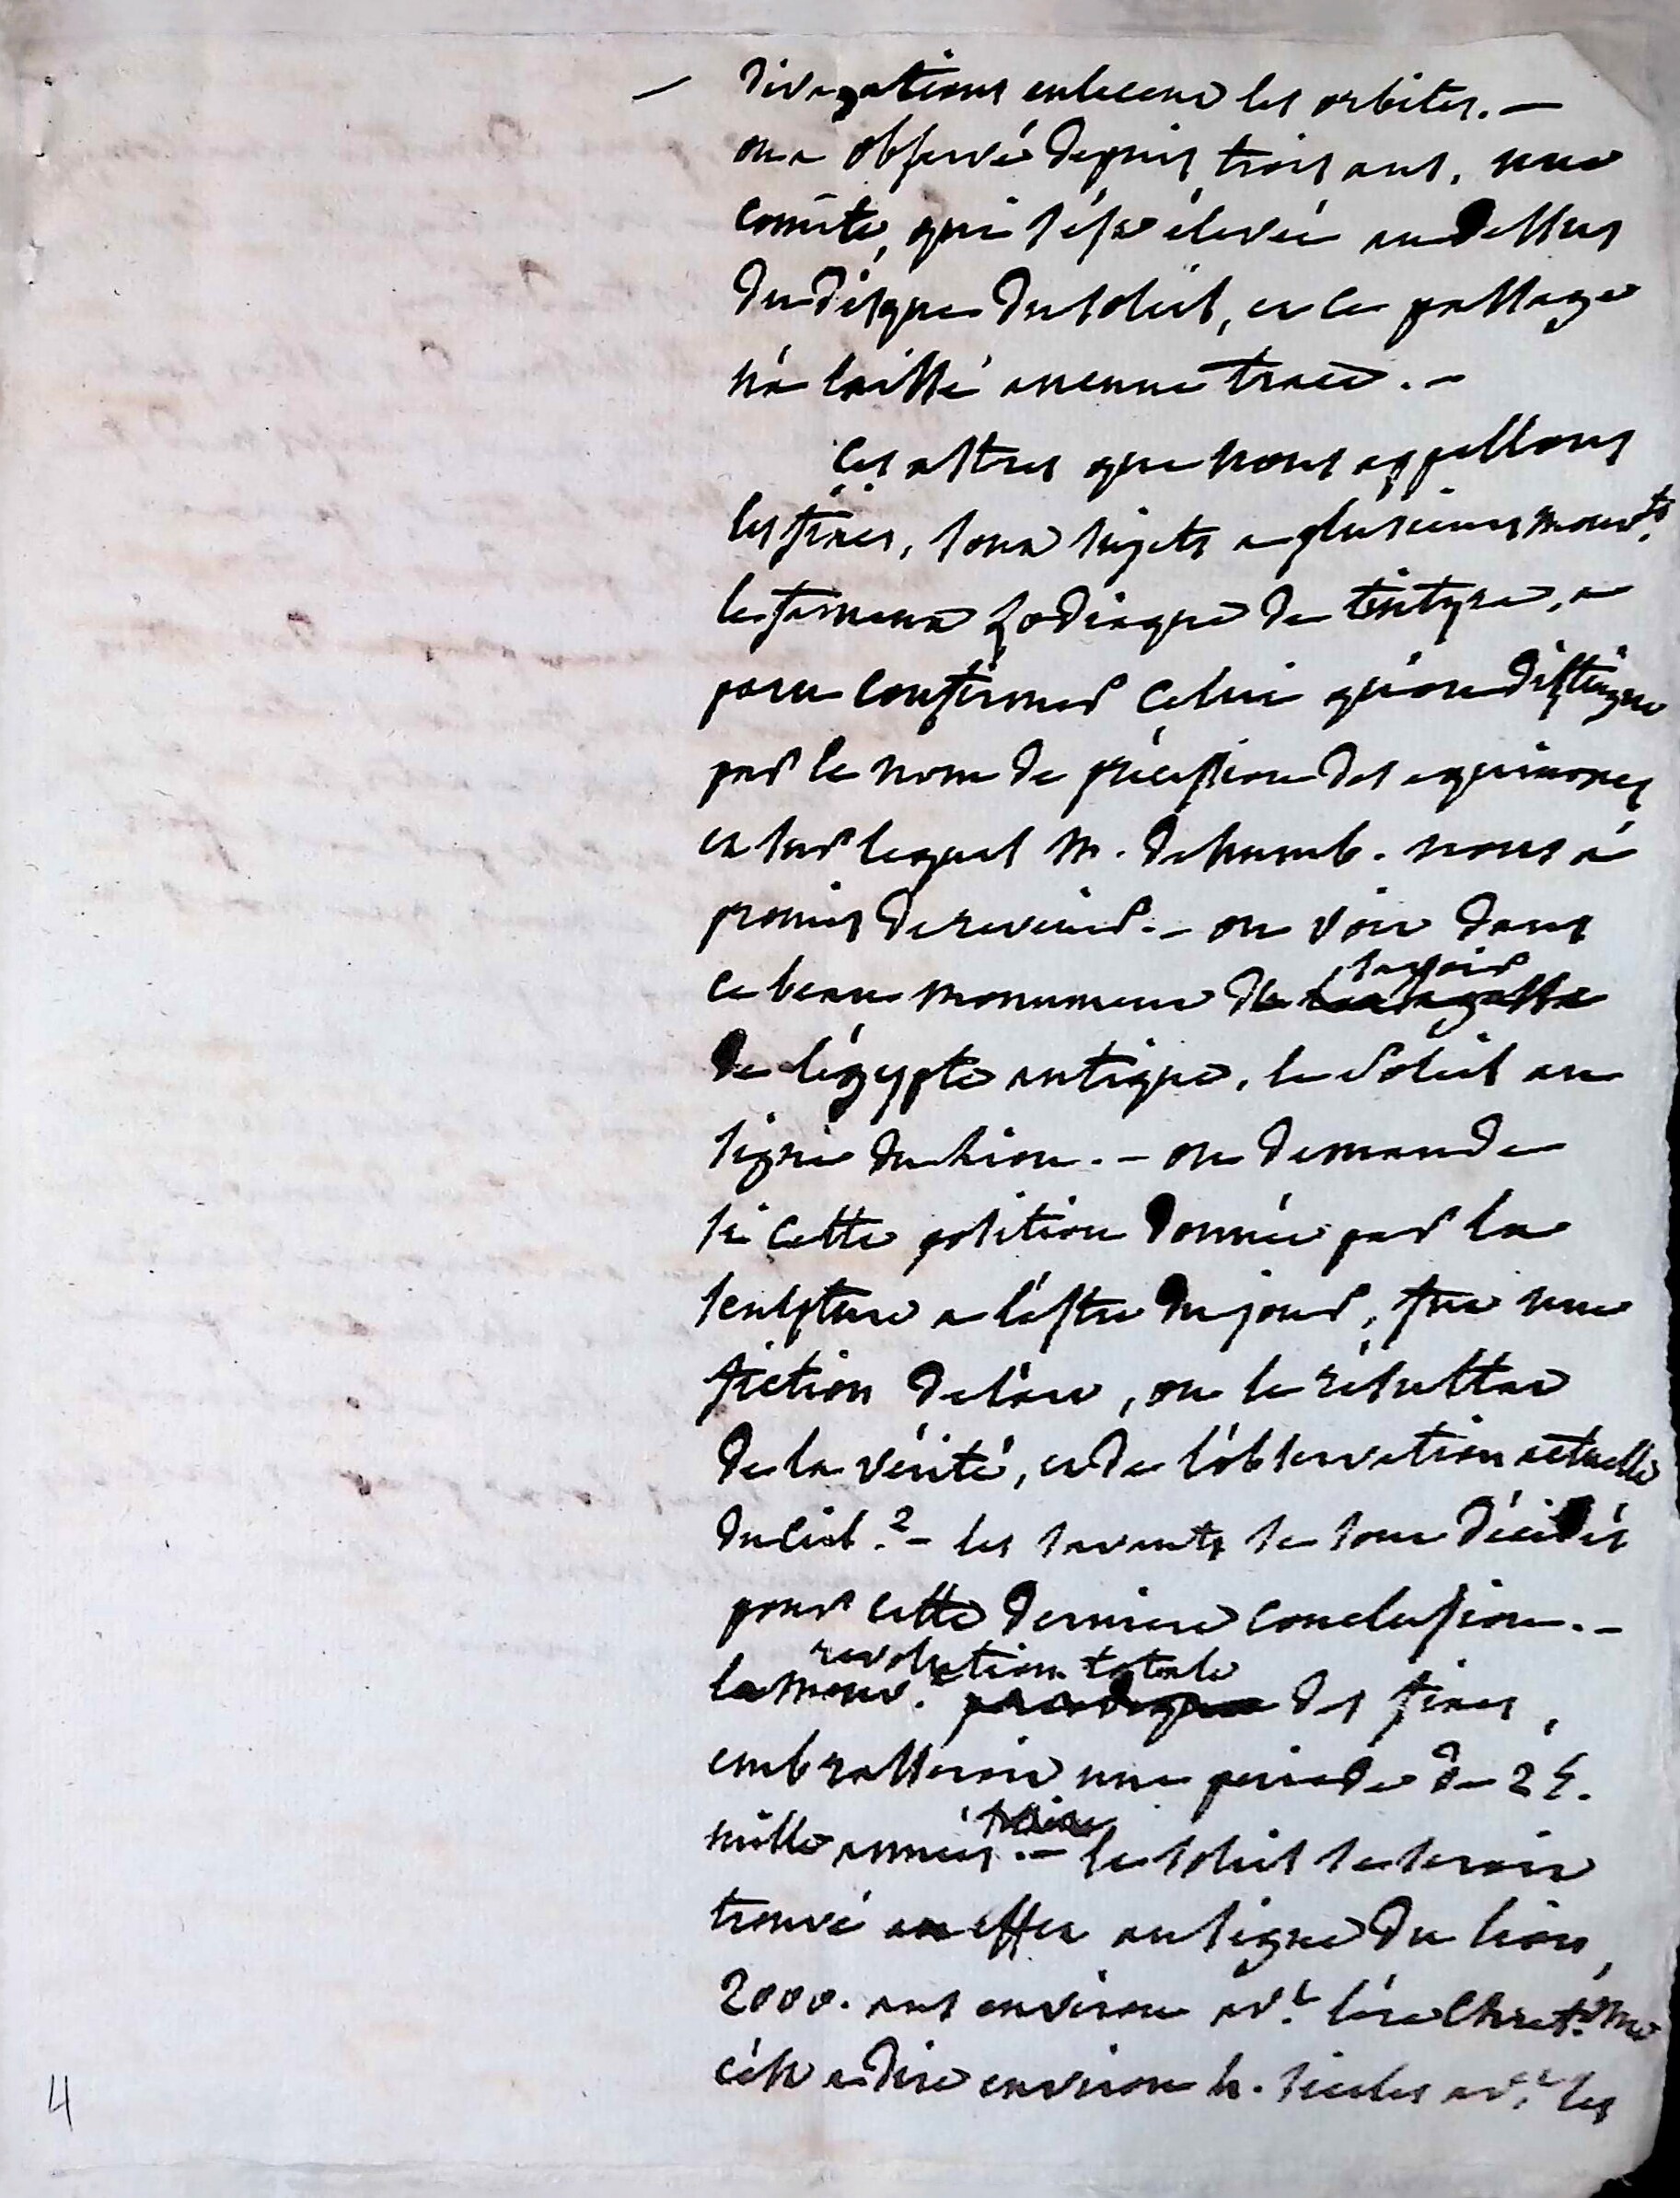 — divagations entecend les orbites. —
on a observé depuis trois ans, une
comète, qui s'est élevée au dessus
du disque du soleil, et ce passage
n'a laissé aucune trace. —
Ces astres que nous appellons
les fixes, sont sujets a plusieurs mouv.ts
le fameux zodiaque de tintyre, a
paru confirmer celui qu'on distingue
par le nom de précession des equinoxes
et sur lequel M. de humb. nous a
promis de revenir. — on voit dans
ce beau monument du savoir
de l'égypte antique, le soleil au
signe du Lion. — on demande
si cette position donnée par la
sculpture a l'astre du jour, fut une
fiction de l'art, ou le résultat
de la vérité, et de l'observation actuelle
du ciel ? — les savants se sont décidés
pour cette derniere conclusion. —
revolution totale
la mouv.t des fixes,
embrasseroit une periode de 25.
mille années. — le soleil se seroit
trouvé en effet au signe du lion,
2000. ans environ av.t l'ère Chret.nne
c'est a dire environ 4. siecles av.t les
4